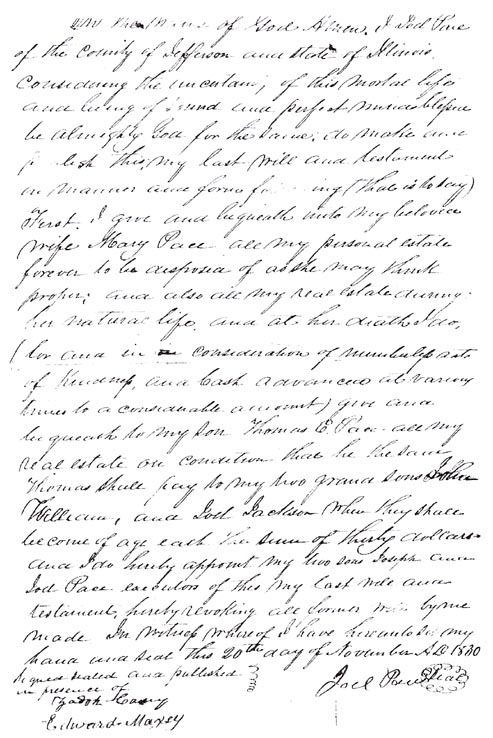 In the Name of God Amen, I Joel Pace
of the county of Jefferson and state of Illinois
considering the uncertainty of this mortal life
and being of sound and perfect mind blessed
be almighty God for the same; do make and
publish this, my last will and testament
in manner and form following (that is to say)
First. I give and bequeath unto my beloved
wife Mary Pace all my personal estate
forever to be disposed of as she may think
proper; and also all my real estate during
her natural life, and at her death I do,
(for and in consideration of numberless acts
of Kindness, and Cash advanced at various
times to a considerable amount) give and
bequeath to my son Thomas E. Pace all my
real estate on condition that he the said
Thomas shall pay to my two grand sons John
William, and Joel Jackson when they shall
become of age each the sum of thirty dollars
and I do hereby appoint my two sons Joseph and
Joel Pace executors of this my last will and
testament, hereby revoking all former wills by me
made. In witness whereof I have hereunto set my
hand and seal this 20th day of November AD 1830
Signed sealed and published
in presence of
Joel Pace Seal
Zadok Casey
Edward Maxey